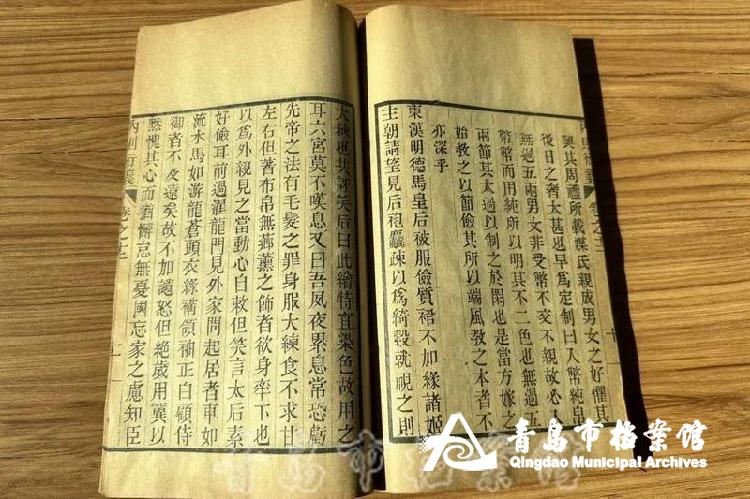 興其周禮所載媒氏親成男女之好懼其
後日之奢太甚也早爲定制曰入幣純帛
無過五兩男女非受幣不交不親故必入
幣幣而用純所以明其不二色也無過五
兩節其太過以制之於閑也是當方嫁之
始教之以節儉其所以端風敎之本者不
亦深乎
東漢明德馬皇后被服儉質裙不加緣諸姬
主朝請望見后袍麤疎以爲綺縠就視之則
大練也共評笑后曰此繒特宜染色故用之
耳六宮莫不嘆息又曰吾夙夜累息常恐虧
先帝之法有毛髮之罪身服大練食不求甘
左右但著布帛無薌薰之飾者欲身率下也
以爲外親見之當動心自敕但笑言太后素
好儉耳前過濯龍門見外家問起居者車如
流水馬如游龍蒼頭衣綠褠領袖正白顧侍
御者不及遠矣故不加譴怒但絶歲用冀以
無愧其心而猶懈怠無憂國忘家之慮知臣
內則衍義 卷之十三
青島市档案馆
Qingdao Municipal Archives